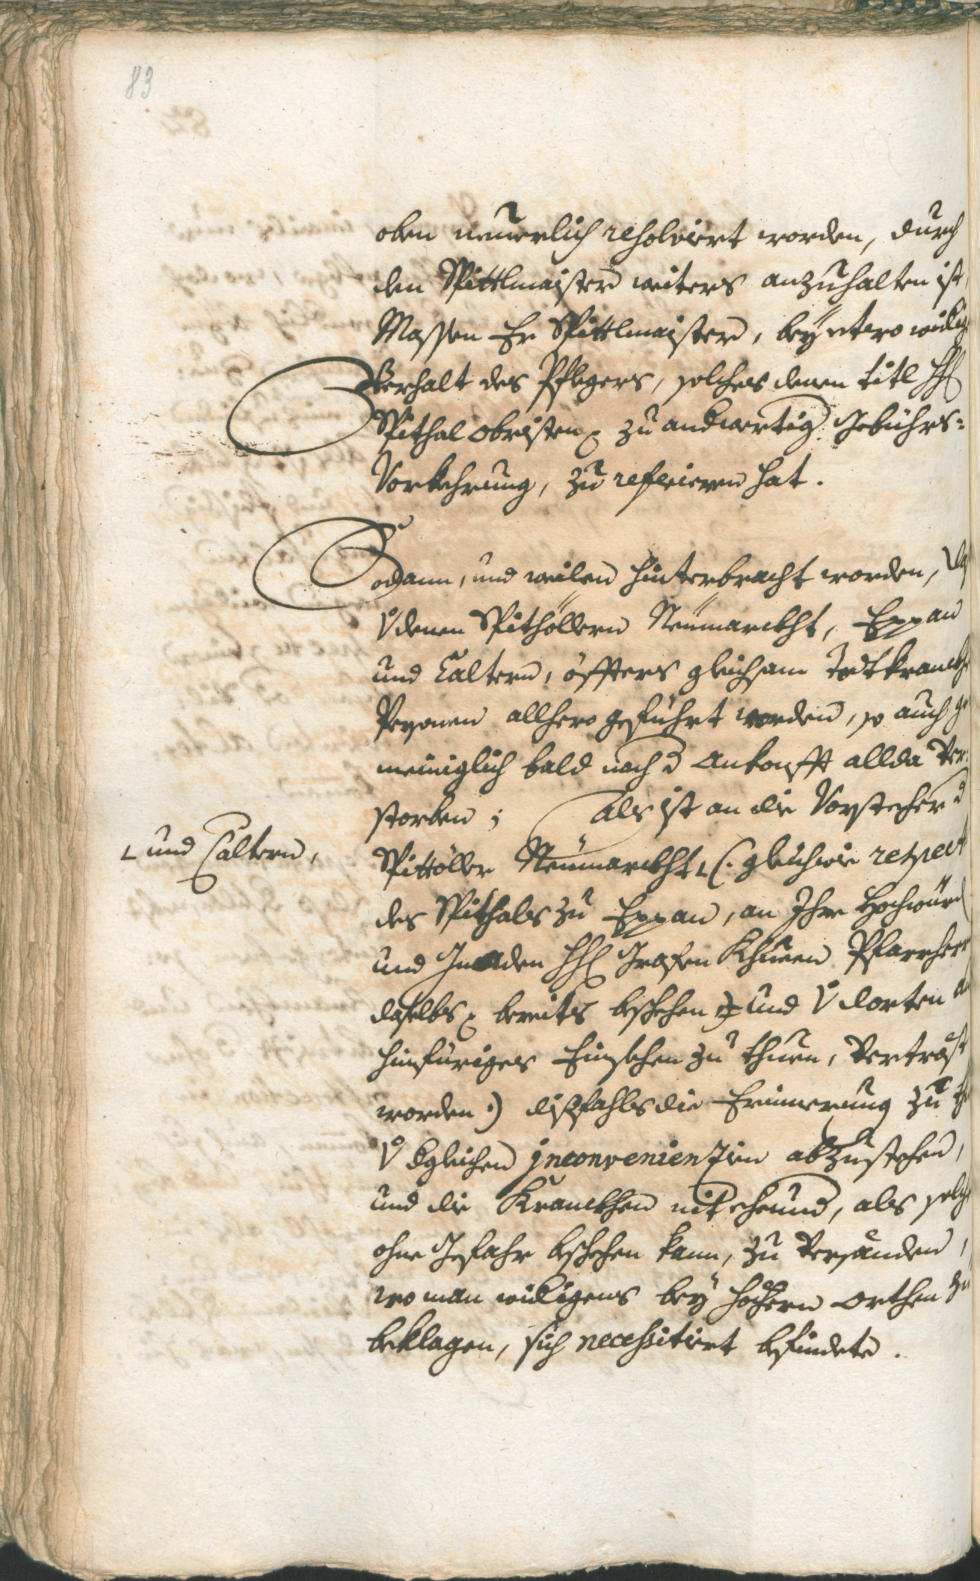 83
oben neuerlich resolviert worden, durch
den Spittlmaister weiters anzuhalten ist,
Massen Er Spittlmaister, bey etwo widrig
Verhalt des Pflegers, solches denen titl HH
Spithal obristen zu andwertig. Gebührs=
Vorkehrung, zu referieren hat.
Sodann, und weilen hinterbracht worden, das
V denen Spithöllern Neümarckht, Eppan
und Caltern, öffters gleichsam Todtkranckhe
Persohnen allhero geführt worden, so auch ge
meiniglich bald nach d Ankonfft allda Ver
storben; Als ist an die Vorsteher d
Spittöller Neümarckht, (: gleichwie respect
└ und Caltern,
des Spithals zu Eppan, an Ihro Hochwürd
und Gnaden HH Grafen Khuen Pfarrherr
daselbs bereits beschehen, und V dorten
hinfüriges Einsehen zu thuen, Vertröst
worden:) dissfahls die Erinnerung zu
V dgleichen inconvenientien abzustehen,
und die Kranckhen nit eheund, als solch
ohne Gefahr beschehen kann, zu Versänden,
wo man widrigens bey höchern orthen zu
beklagen, sich necessitiert befindete.